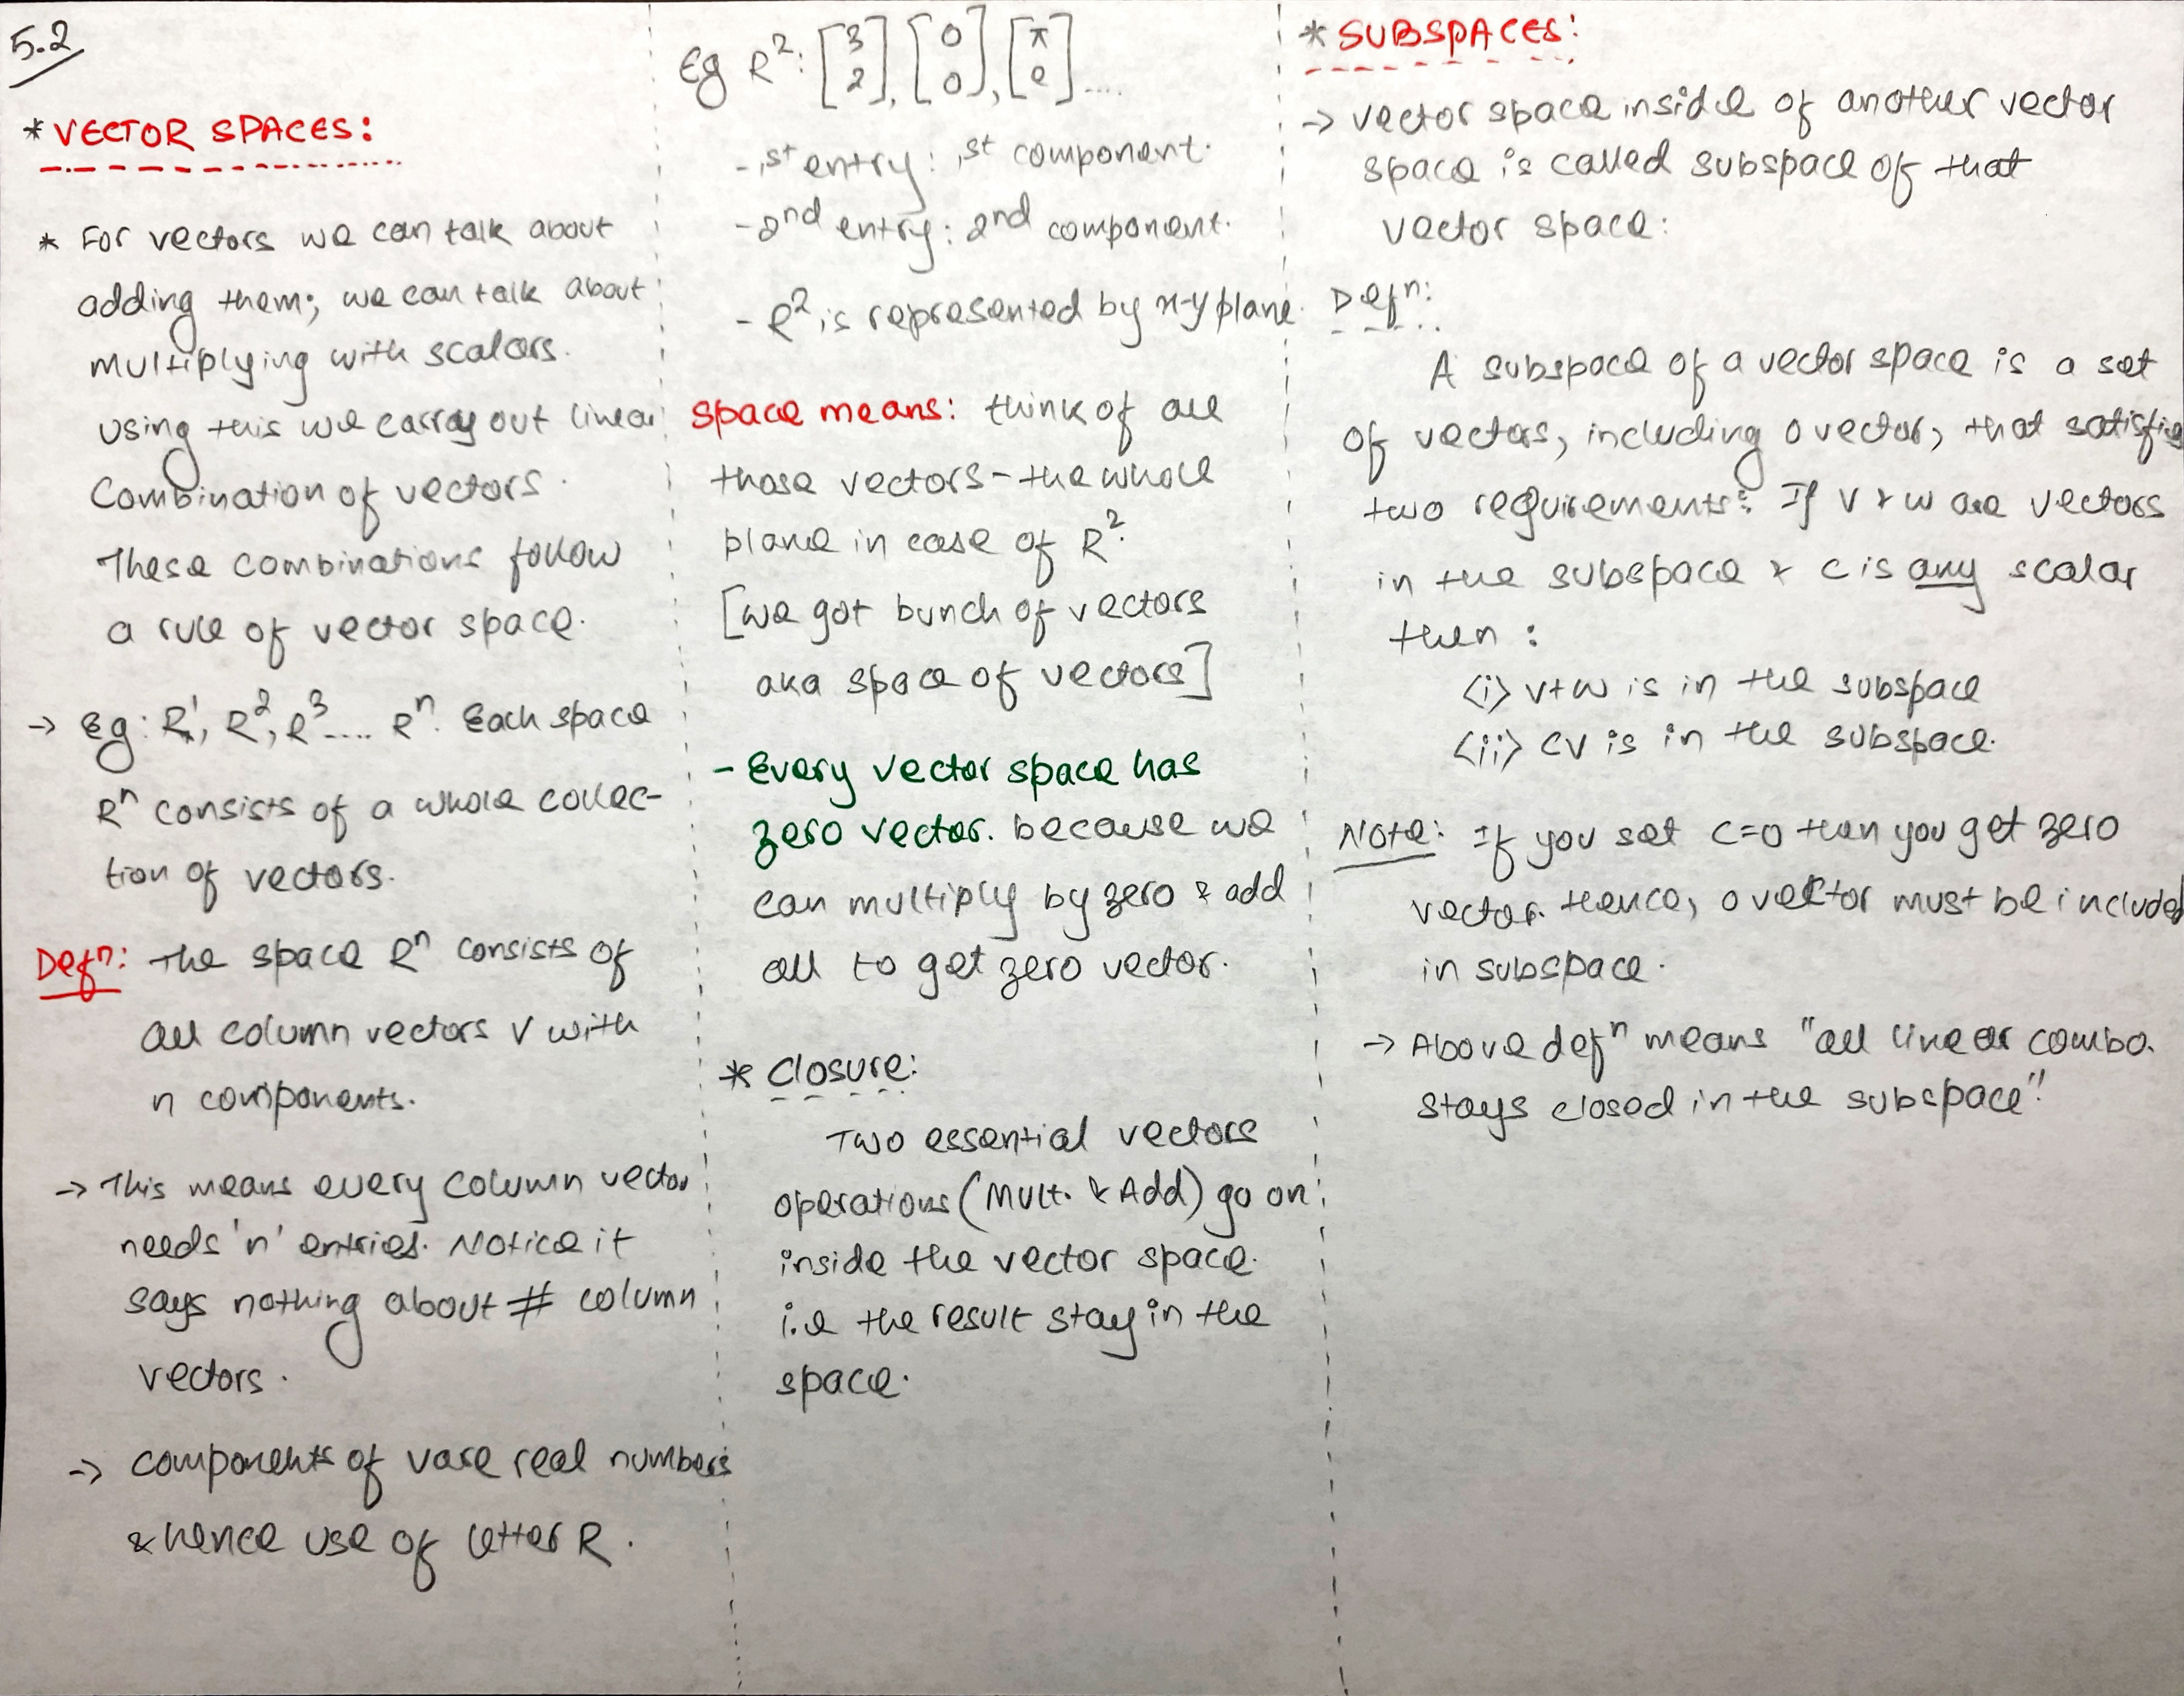 5.2
* VECTOR SPACES:
* For vectors we can talk about
adding them; we can talk about
multiplying with scalars.
using this we carray out linear
Combination of vectors.
These combinations follow
a rule of vector space.
→ Eg: R¹, R², R³.... Rⁿ. Each space
Rⁿ consists of a whole collec-
tion of vectors.
Defⁿ: The space Rⁿ consists of
all column vectors v with
n components.
→ This means every column vector
needs 'n' entries. Notice it
says nothing about # column
vectors.
→ components of v are real numbers
& hence use of letter R.
Eg R²: [3 2], [0 0], [π e]....
- 1st entry: 1st component.
- 2nd entry: 2nd component.
- R² is represented by x-y plane.
space means: think of all
those vectors - the whole
plane in case of R².
[we got bunch of vectors
aka space of vectors]
- Every vector space has
zero vector. because we
can multiply by zero & add
all to get zero vector.
* Closure:
Two essential vectors
operations (Mult. & Add) go on
inside the vector space.
i.e the result stay in the
space.
* SUBSPACES:
→ vector space inside of another vector
space is called subspace of that
vector space:
Defⁿ:
A subspace of a vector space is a set
of vectors, including 0 vector, that satisfies
two requirements: If v & w are vectors
in the subspace & c is any scalar
then :
<i> v+w is in the subspace
<ii> cv is in the subspace.
Note: If you set c=0 then you get zero
vector. Hence, 0 vector must be included
in subspace.
→ Above defⁿ means "all linear combo.
stays closed in the subspace".